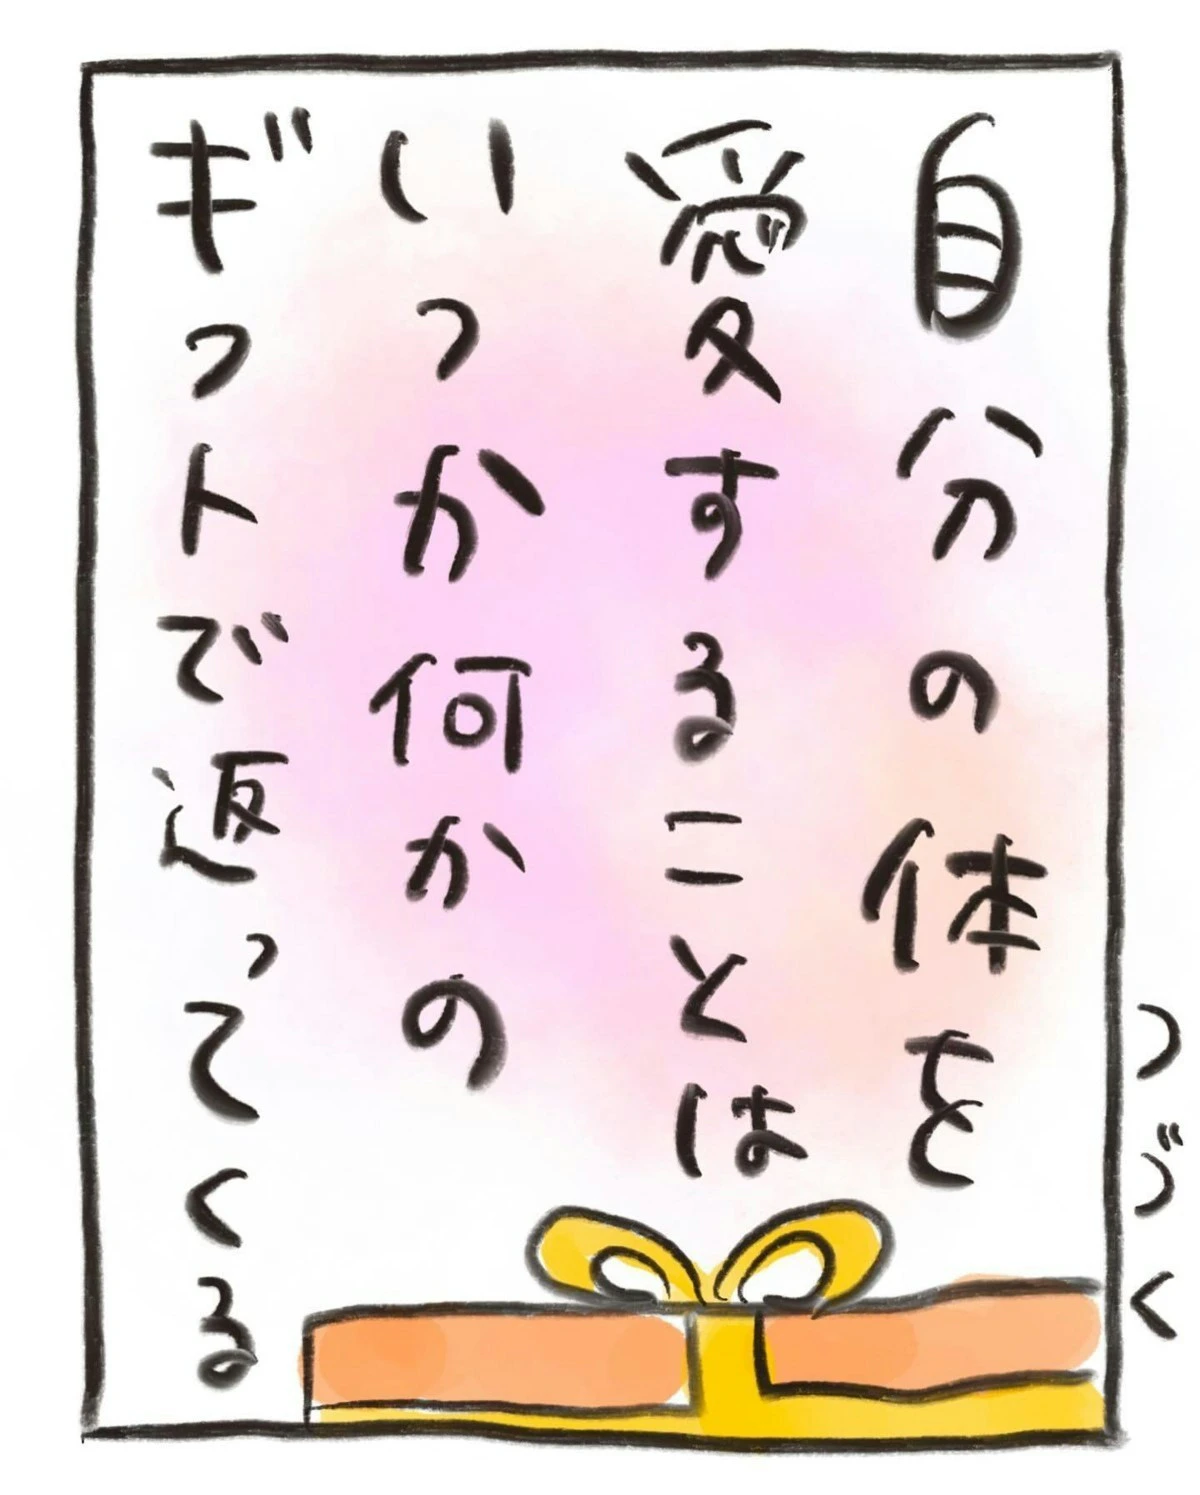 自分の体を
愛することは
いつか何かの
ギフトで返ってくる
つづく